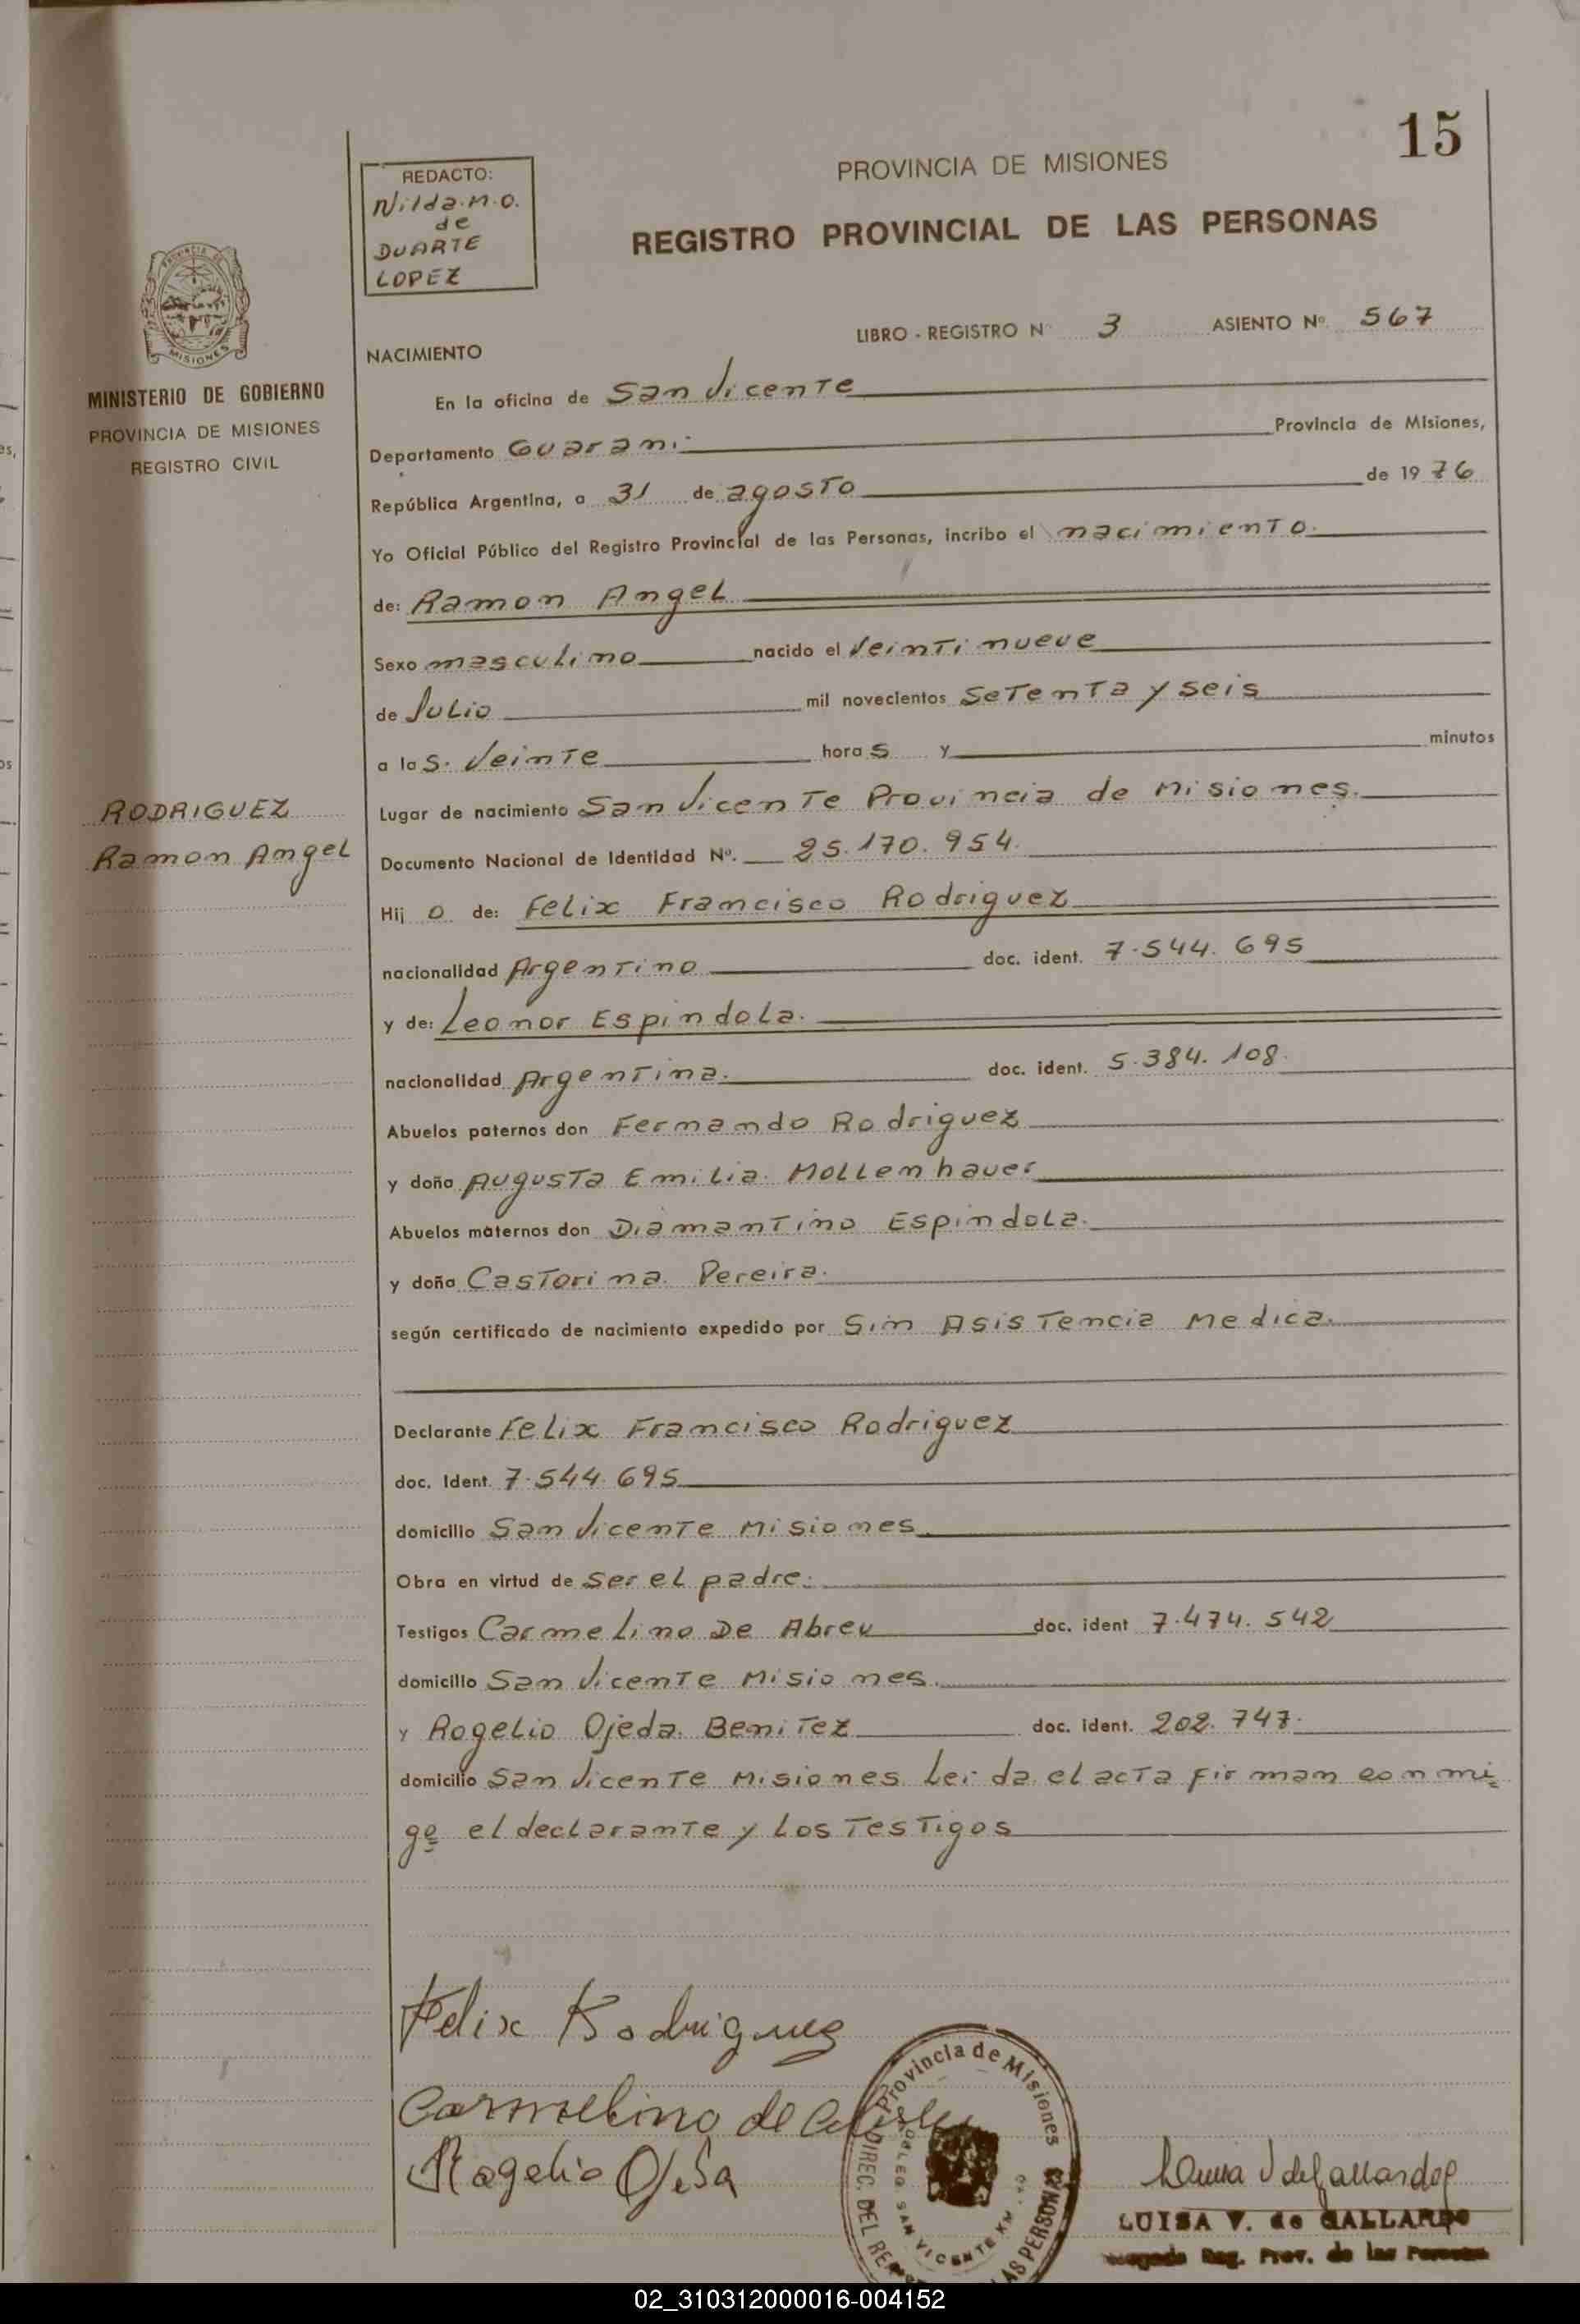 15
REDACTO:
Nilda.M.O.
de
DUARTE
LOPEZ
PROVINCIA DE MISIONES
REGISTRO PROVINCIAL DE LAS PERSONAS
PROVINCIA DE
MISIONES
MINISTERIO DE GOBIERNO
PROVINCIA DE MISIONES
REGISTRO CIVIL
LIBRO - REGISTRO Nº 3 ASIENTO Nº 567
NACIMIENTO
En la oficina de San Vicente
Departamento Guarani Provincia de Misiones,
República Argentina, a 31 de agosto de 1976
Yo Oficial Público del Registro Provincial de las Personas, incribo el nacimiento.
de: Ramon Angel
Sexo masculino nacido el Veintinueve
de Julio mil novecientos Setenta y seis
a las. Veinte horas y minutos
Lugar de nacimiento San Vicente Provincia de Misiones.
RODRIGUEZ
Ramon Angel
Documento Nacional de Identidad Nº. 25.170.954
Hijo de: Felix Francisco Rodriguez
nacionalidad Argentino doc. ident. 7.544.695
y de: Leonor Espindola.
nacionalidad Argentina. doc. ident. 5.384.108.
Abuelos paternos don Fernando Rodriguez
y doña Augusta Emilia Mollenhauer
Abuelos maternos don Diamantino Espindola.
y doña Castorina Pereira.
según certificado de nacimiento expedido por Sin Asistencia Medica.
Declarante Felix Francisco Rodriguez
doc. Ident. 7.544.695
domicilio San Vicente Misiones
Obra en virtud de ser el padre.
Testigos Carmelino De Abreu doc. ident 7.474.542
domicilio San Vicente Misiones.
y Rogelio Ojeda Benitez doc. ident. 202.747.
domicilio San Vicente Misiones Leida el acta firman conmi=
go el declarante y Los Testigos
Felix Rodriguez
Carmelino de Abreu
Rogelio Ojeda
Provincia de Misiones
SAN VICENTE KM.
DIREC. DEL
LAS PERSONAS
Luisa V de Gallardo
LUISA V. de GALLARDO
Reg. Prov. de las Personas
02_310312000016-004152